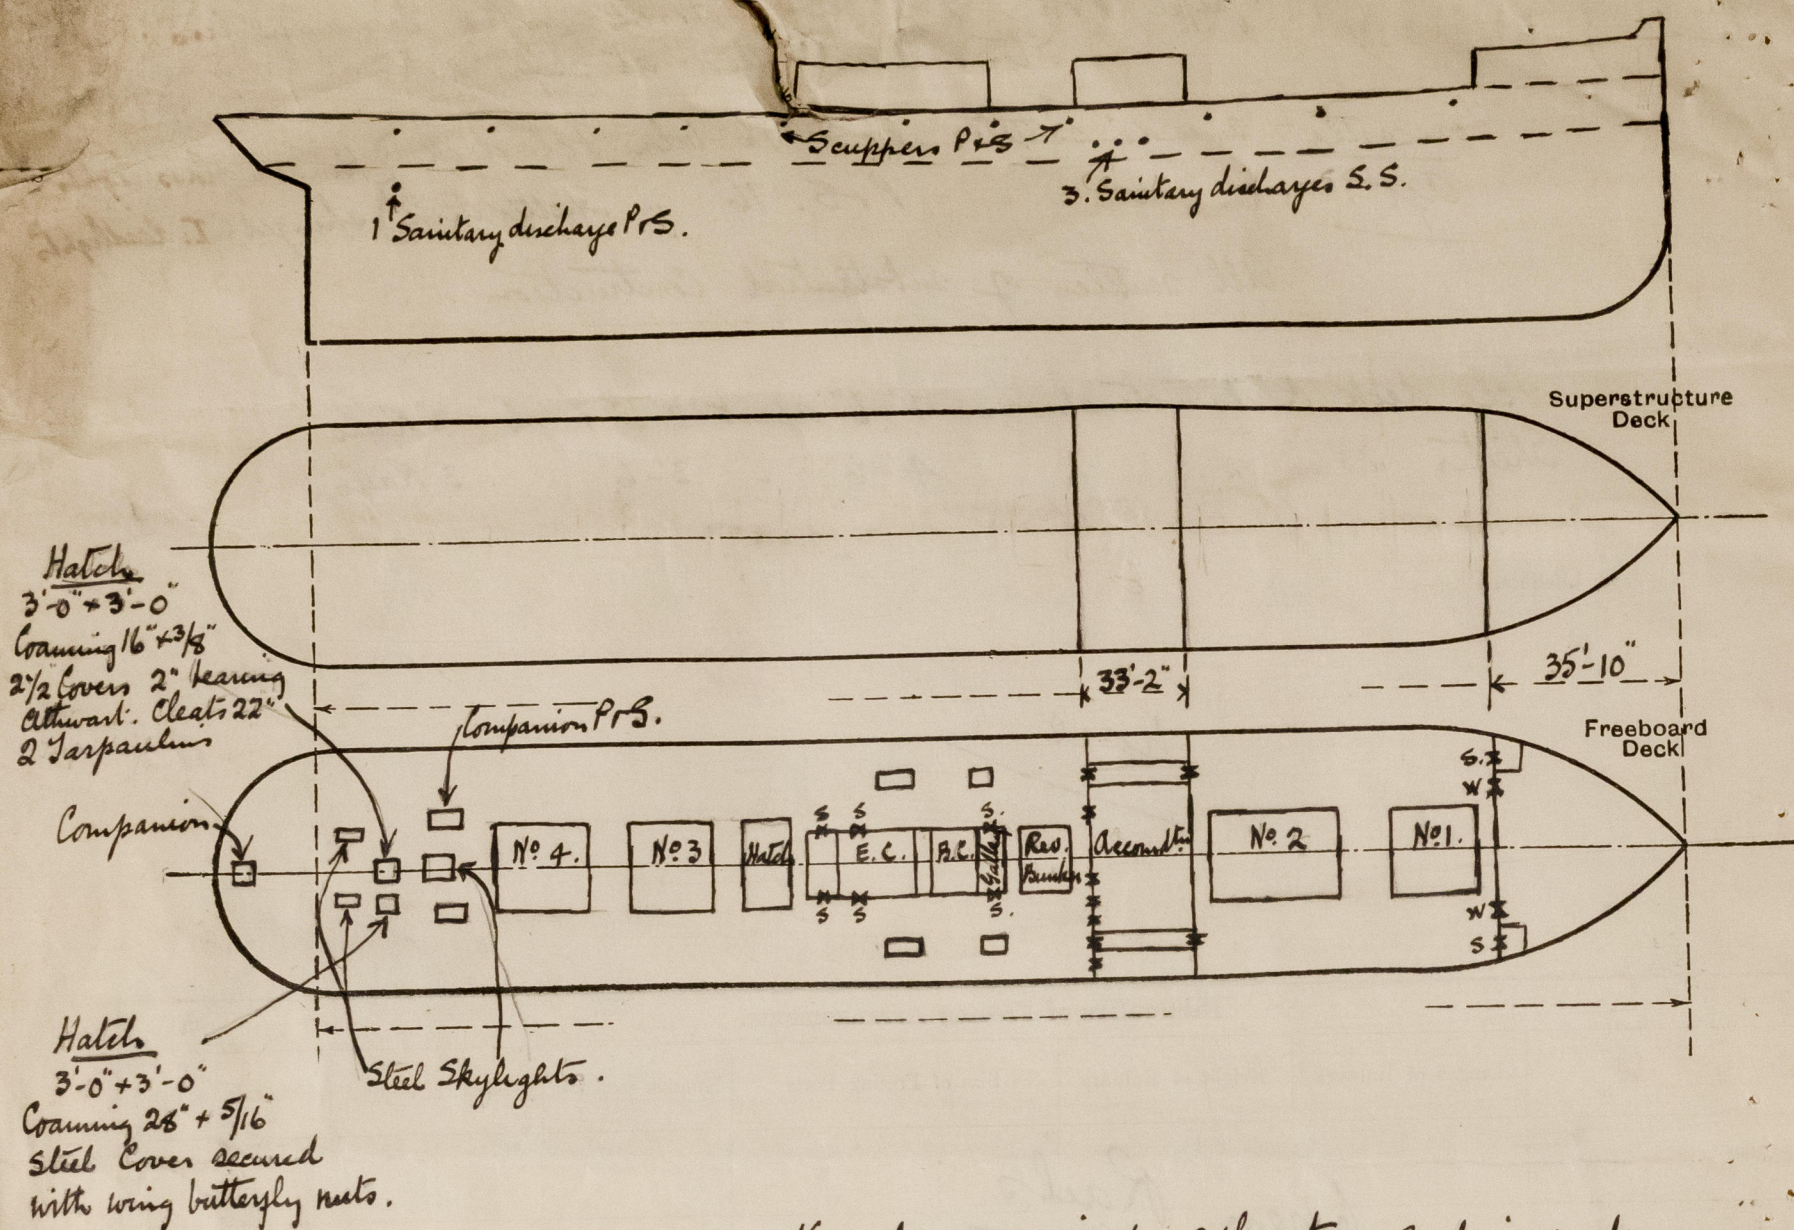 Scuppers P&S
3. Sanitary discharges S.S.
1 Sanitary discharge P&S.
Superstructure
Deck
Hatch
3'-0" × 3'-0"
Coaming 16" × 3/8"
2 1/2 Covers 2" bearing
Athwart. Cleats 22"
2 Tarpaulins
33'-2"
35'-10"
Companion P&S.
Freeboard
Deck
Companion
S. W
S S S.
No 4. No 3 Hatch E.C. B.C. Galley Res. Bunker Accomdtn No 2 No 1.
S S S.
W
S
Hatch
3'-0" + 3'-0"
Coaming 28" + 5/16"
Steel Cover secured
with wing butterfly nuts.
Steel Skylights.